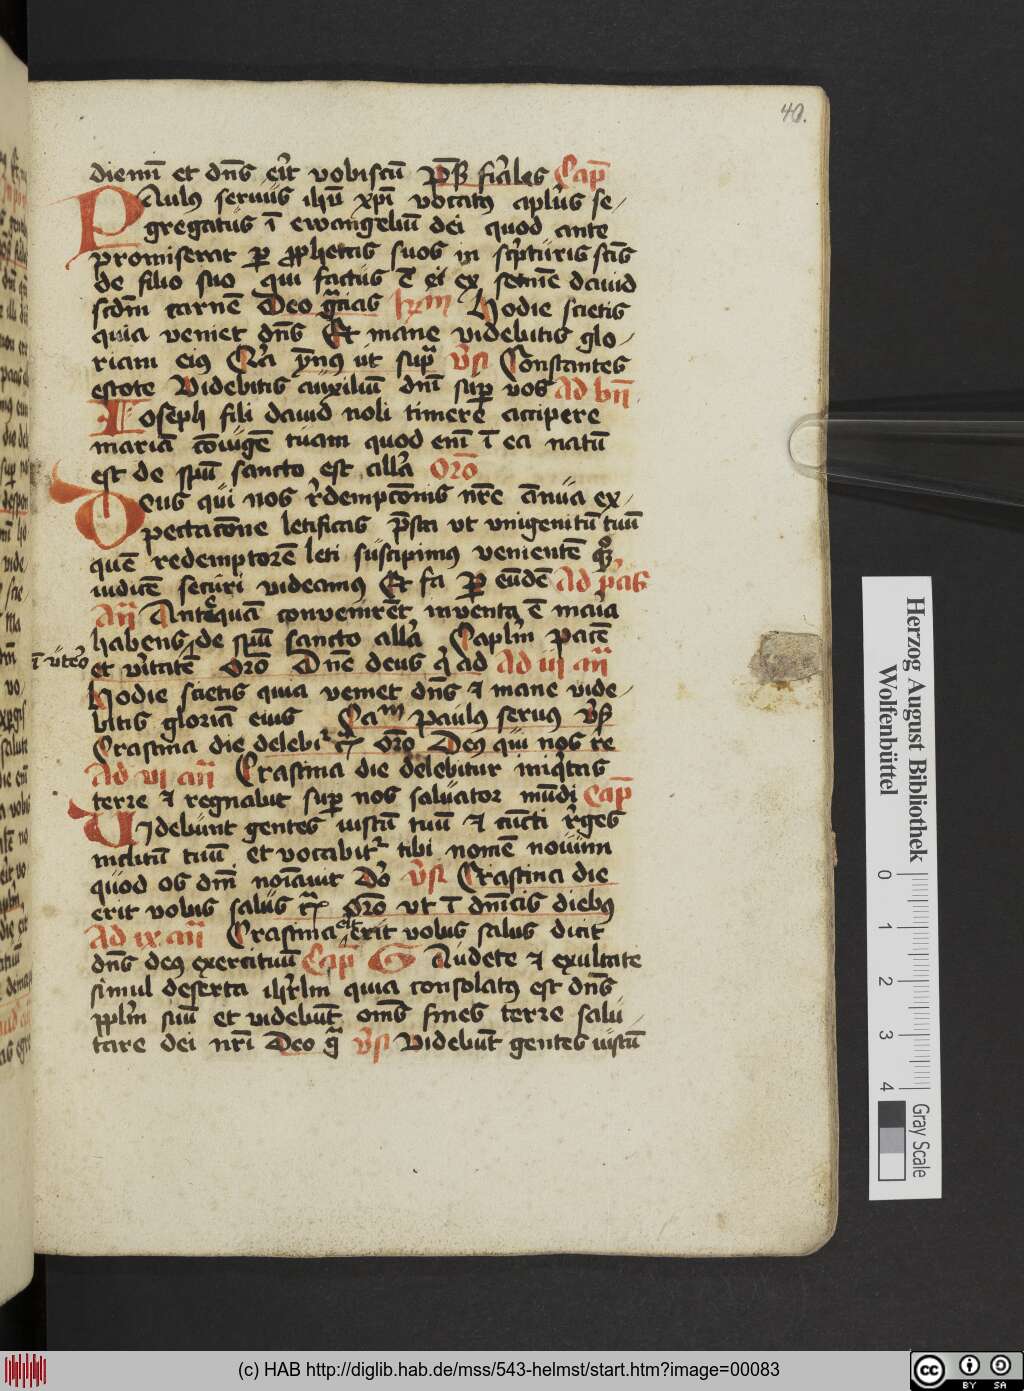 40.
diemī et dn̄s er̄it vobiscū Ps̄ f̄iales Cap̄
PAulꝰ seruus ih̄u xp̄i vocatꝰ apl̄us se-
gregatus ī ewangeliū dei quod ante
promiserat ꝑ ꝓphetas suos in sc̄pturis sc̄is
de filio suo qui factus ē ei ex semīe dauid
scd̄m carnē Deo gr̄cias Hodie scietis
quia veniet dn̄s Et mane videbitis glo-
riam eiꝰ ym̄nꝰ ut sup̄ª v̄s Constantes
estote Videbitis auxiliū dn̄i sup̄ vos Ad bn̄
Ioseph fili dauid noli timere accipere
mariā cōiugē tuam quod enī ī ea natū
est de sp̄u sancto est all̄a Or̄o
Deus qui nos r̄dempcōnis nr̄e ānua ex-
pectacōne letificas p̄sta ut unigenitū tuū
quē redemptorē leti suscipimꝰ venientē qͦꝫ
iudicē securi videamꝰ Et fa ꝑ eūdē Ad p̄ās
An̄ Anteqͣuā convenirēt inventa ē maria
habens de sp̄u sancto all̄a Capl̄m pacē
ī utero
et v̄itatē Or̄o Dn̄e deus q̄ ad Ad iij an̄
Hodie scietis quia veniet dn̄s ⁊ mane vide-
bitis gloriā eius Caᵐ paulꝰ seruꝰ v̄s
Crastina die delebiᵗ Or̄o Deꝰ qui nos re
Ad vi an̄ Crastina die delebitur iniq̄tas
terre ⁊ regnabit sup̄ nos saluator mūdi Cap̄
Videbunt gentes iustū tuū ⁊ cūcti r̄ges
inclitū tuū et vocabitᷣ tibi nomē nouum
quod os dn̄i noīauit Dō v̄s Crastina die
erit vobis salus Or̄o ut ī dn̄icis diebꝰ
Ad ix an̄ Crastina erit vobis salus dicit
dn̄s deꝰ exercituū Cap̄ GAudete ⁊ exultate
simul deserta ih̄rlm̄ quia consolatꝰ est dn̄s
ppl̄m suū et videbūt om̄s fines terre salu-
tare dei nr̄i Deo gª v̄s Videbūt gentes iustū
Herzog August Bibliothek
Wolfenbüttel
0 1 2 3 4
Gray Scale
(c) HAB http://diglib.hab.de/mss/543-helmst/start.htm?image=00083
cc BY SA